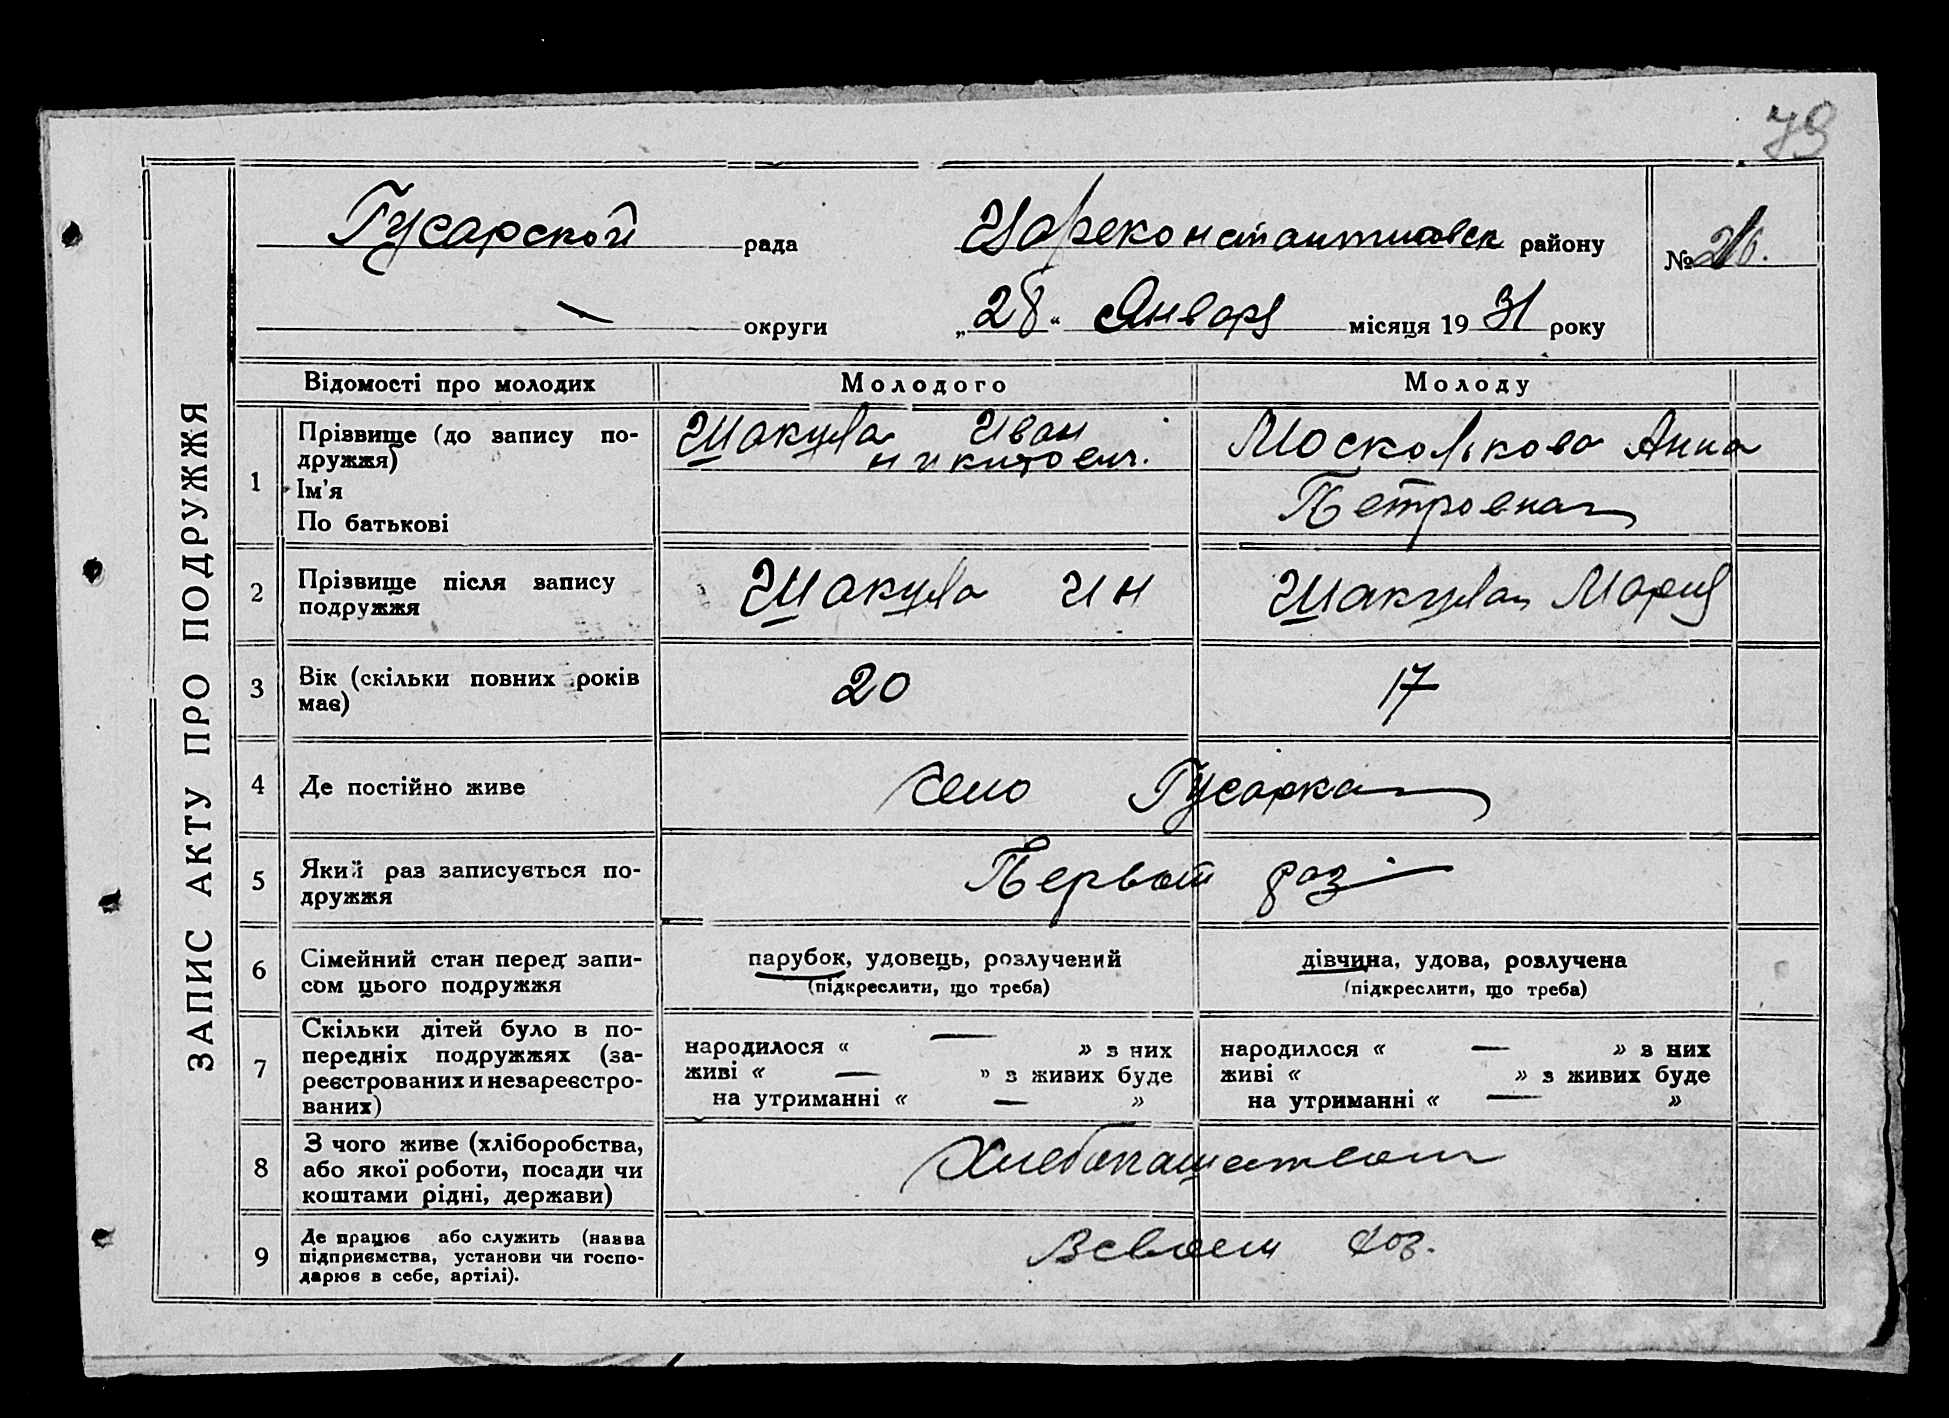 79
Гусарской рада Цареконстантиновск району № 26.
округи „28“ Января місяця 1931 року
ЗАПИС АКТУ ПРО ПОДРУЖЖЯ
Відомості про молодих Молодого Молоду
1 Прізвище (до запису подружжя) Ім'я По батькові
Шакула Иван
Никитович.
Москолькова Анна
Петровна
2 Прізвище після запису
подружжя
Шакула И Н
Шакулая Мария
3 Вік (скільки повних років
має)
20
17
4 Де постійно живе
село Гусарка
5 Який раз записується по-
дружжя
Первый раз
6 Сімейний стан перед запи-
сом цього подружжя
парубок, удовець, розлучений
(підкреслити, що треба)
дівчина, удова, розлучена
(підкреслити, що треба)
7 Скільки дітей було в по-
передніх подружжях (за-
реєстрованих и незареєстро-
ваних)
народилося « — » з них
живі « — » з живих буде
на утриманні « — »
народилося « — » з них
живі « » з живих буде
на утриманні « — »
8 З чого живе (хліборобства,
або якої роботи, посади чи
коштами рідні, держави)
Хлебопашеством
9 Де працює або служить (назва
підприємства, установи чи госпо-
дарює в себе, артілі).
В своем хоз.